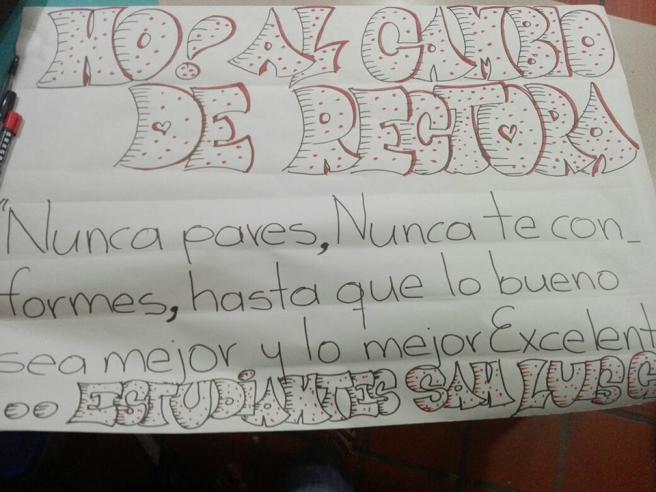 NO! AL CAMBIO
DE RECTORA
"Nunca pares, Nunca te con_
formes, hasta que lo bueno
sea mejor y lo mejor Excelent
ESTUDIANTES SAN LUIS G